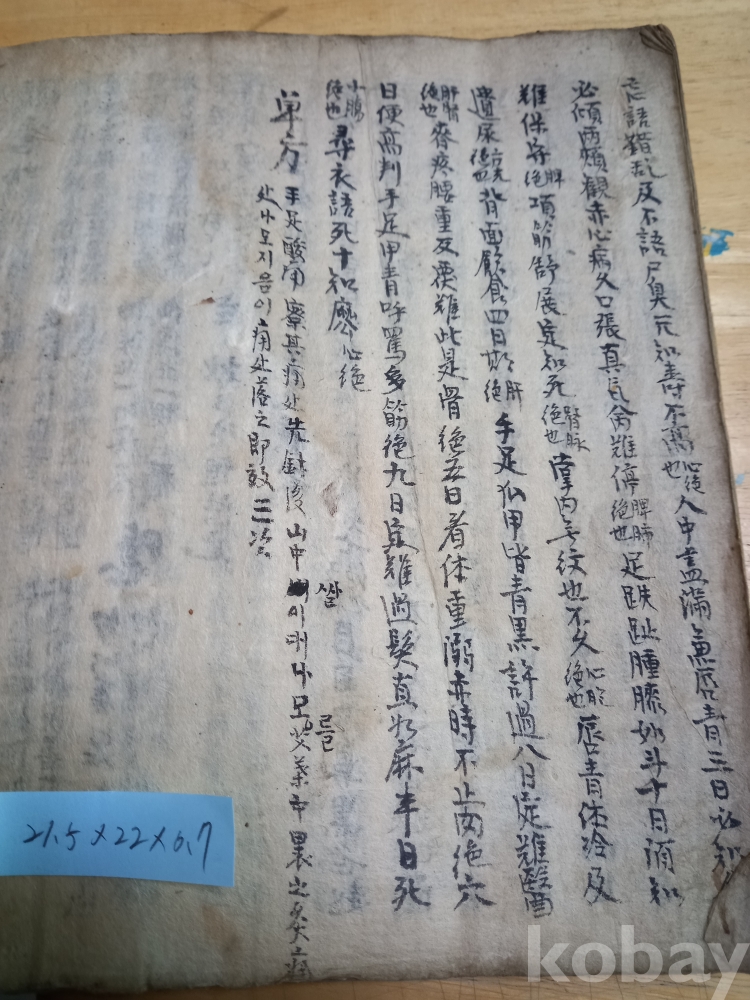 忘語錯乱及不語尸臭元知壽不寓心絶也人中盡滿魚唇青三日必知
必傾兩頰觀赤心病久口張直氣會難停脾肺絶也足趺趾腫膝如斗十日須知
難保守脾絶項筋舒展定知死腎脉絶也掌內無紋也不久心胞絶也唇青体冷及
遺尿膀胱絶也背面飮食四日斯肝絶手足爪甲皆青黑許過八日定難醫
肝腎絶也脊疼腰重反覆難此是骨絶五日看体重溺赤時不止肉絶穴
日便高判手足甲青呼罵多筋絶九日定難過髮直如麻半日死
小腸絶也尋衣語死十知廖心絶
单方 手足酸用 察其痛処先針後山中 싸리대나모 기름 艾葉 裹之灸
処나모지음이痛处落之即效 三次
21.5×22×0.7
kobay